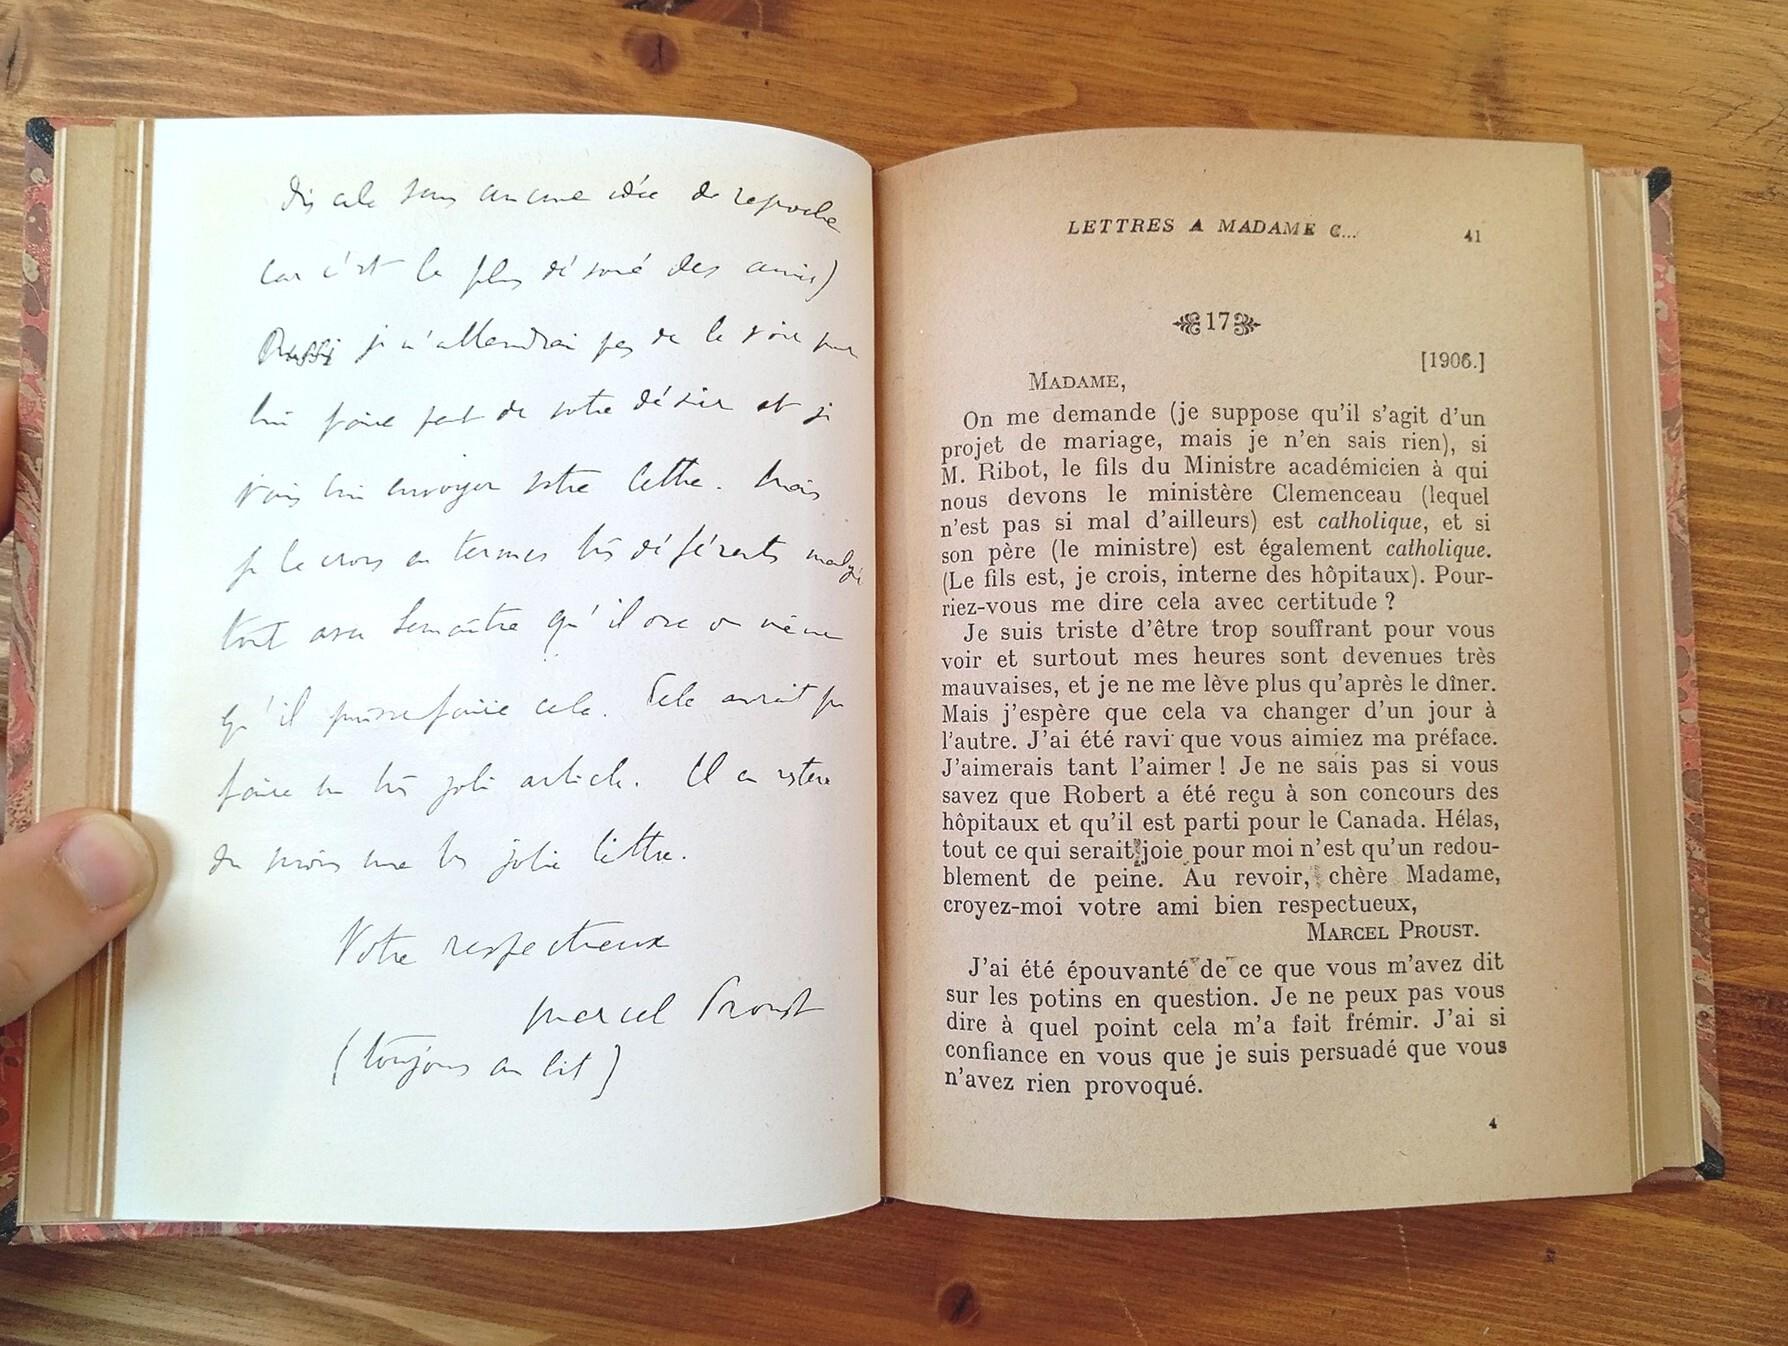 dis cela sans aucune idée de reproche
car c'est le plus dé des amis)
Aussi je n'attendrai pas de le voir pour
lui faire part de votre désir et je
vais lui envoyer votre lettre. Mais
je le crois en termes très déférents malgré
tout avec Lemaître qu'il ose ou même
qu'il puisse faire cela. Cela aurait pu
faire un très joli article. Il en restera
du moins une très jolie lettre.
Votre respectueux
Marcel Proust
(toujours au lit)
LETTRES A MADAME C...
41
17
[1906.]
MADAME,
On me demande (je suppose qu'il s'agit d'un
projet de mariage, mais je n'en sais rien), si
M. Ribot, le fils du Ministre académicien à qui
nous devons le ministère Clemenceau (lequel
n'est pas si mal d'ailleurs) est catholique, et si
son père (le ministre) est également catholique.
(Le fils est, je crois, interne des hôpitaux). Pour-
riez-vous me dire cela avec certitude ?
Je suis triste d'être trop souffrant pour vous
voir et surtout mes heures sont devenues très
mauvaises, et je ne me lève plus qu'après le dîner.
Mais j'espère que cela va changer d'un jour à
l'autre. J'ai été ravi que vous aimiez ma préface.
J'aimerais tant l'aimer ! Je ne sais pas si vous
savez que Robert a été reçu à son concours des
hôpitaux et qu'il est parti pour le Canada. Hélas,
tout ce qui serait joie pour moi n'est qu'un redou-
blement de peine. Au revoir, chère Madame,
croyez-moi votre ami bien respectueux,
MARCEL PROUST.
J'ai été épouvanté de ce que vous m'avez dit
sur les potins en question. Je ne peux pas vous
dire à quel point cela m'a fait frémir. J'ai si
confiance en vous que je suis persuadé que vous
n'avez rien provoqué.
4